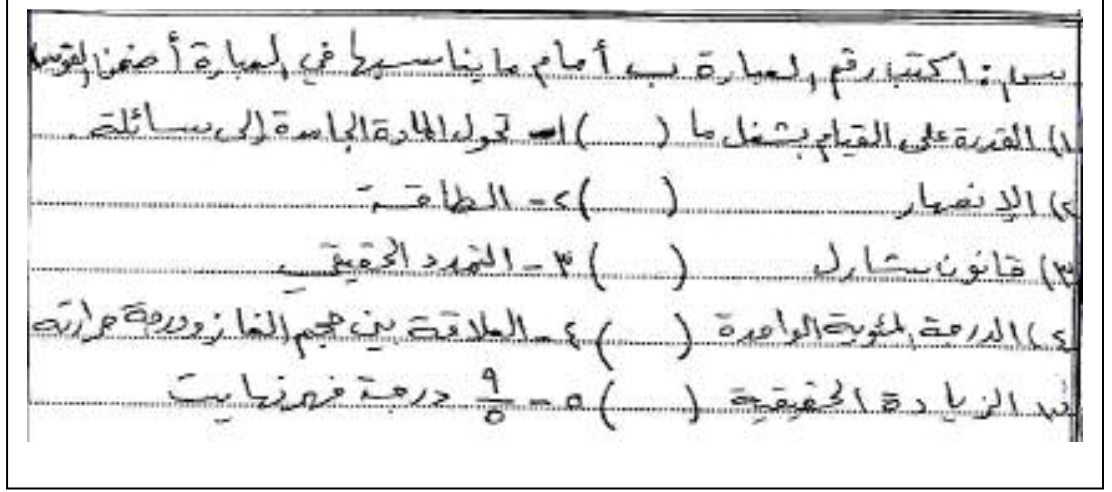 س٣: اكتب رقم العبارة ب أمام ما يناسبها في العبارة أ ضمن القوسين
١) القدرة على القيام بشغل ما (    ) ١- تحول المادة الجامدة إلى سائلة.
٢) الإنصهار (    ) ٢- الطاقة
٣) قانون شارل (    ) ٣- التمدد الحقيقي
٤) الدرجة المئوية الواحدة (    ) ٤- العلاقة بين حجم الغاز ودرجة حرارته
الزيادة الحقيقية (    ) ٥- ٩/٥ درجة فهرنهايت